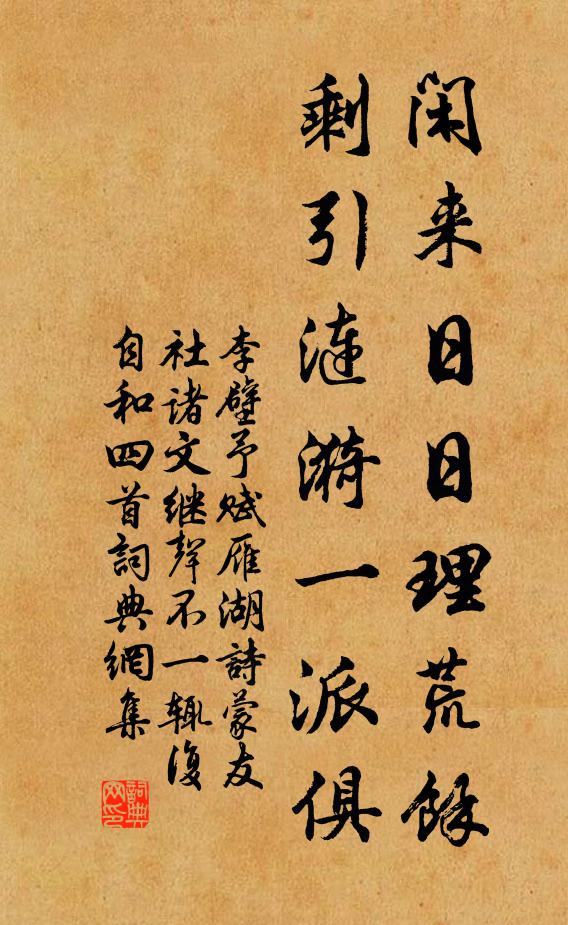 闲来日日理荒馀
剩引涟漪一派俱
李壁予赋雁湖詩蒙友
社诸文继聲不一辄復
自和四首詞典網集
詞典網印